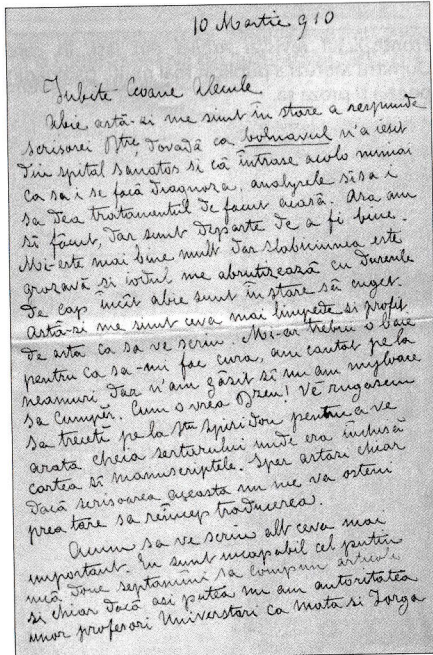 10 Martie 910
Iubite Coane Alecule
Abie astă-zi me simt în store a respunde
scrisorei Dtre, dovadă ca bolnavul n'a iesit
din spital sanatos si că întrase acolo numai
ca sa i se facă diagnoza, analyzele si sa i
sa dea tratamentul de facut acasă. Asa am
si făcut, dar sunt departe de a fi bine.
Mi-este mai bine mult dar slabiciunea este
grozavă si iodul me abrutizează cu durerile
de cap incât abie sunt în stare să cuget.
Astă-zi me simt ceva mai limpede si profit
de asta ca sa ve scriu. Mi-ar trebui o baie
pentru ca sa-mi fac cura, am cautat pe la
neamuri dar n'am găsit si nu am myloace
sa cumpăr. Cum o vrea Dzeu! Vĕ rugasem
sa treceti pe la Stu Spiridon pentru a ve
arata cheia sertarului unde era închisă
cartea si manuscriptele. Sper astări chiar
dacă scrisoarea aceasta nu me va osteni
prea tare sa reincep traducerea.
Acum sa ve scriu alt ceva mai
important. Eu sunt incapabil cel putin
incă doue septamîni sa compun articole
si chiar dacă asi putea nu am autoritatea
unor profesori Universitari ca mata si Iorga